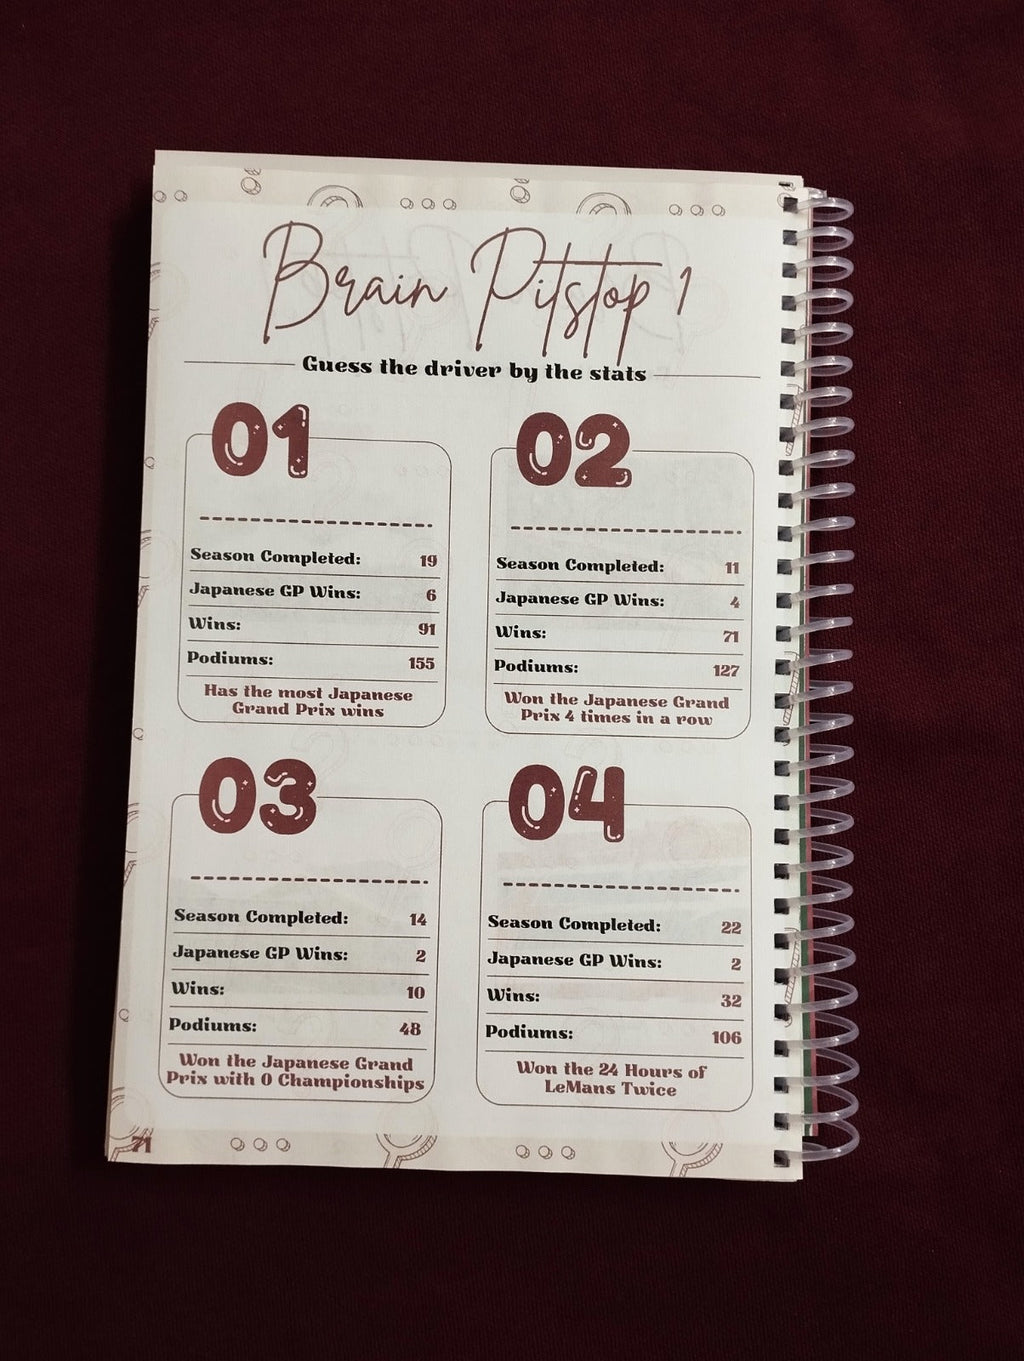 Brain Pitstop 1
Guess the driver by the stats
01
Season Completed: 19
Japanese GP Wins: 6
Wins: 91
Podiums: 155
Has the most Japanese
Grand Prix wins
02
Season Completed: 11
Japanese GP Wins: 4
Wins: 71
Podiums: 127
Won the Japanese Grand
Prix 4 times in a row
03
Season Completed: 14
Japanese GP Wins: 2
Wins: 10
Podiums: 48
Won the Japanese Grand
Prix with 0 Championships
04
Season Completed: 22
Japanese GP Wins: 2
Wins: 32
Podiums: 106
Won the 24 Hours of
LeMans Twice
71